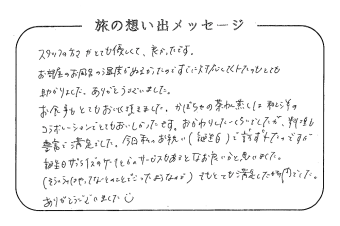 旅の想い出メッセージ
スタッフの方々がとても優しくて、良かったです。
お部屋のお風呂の温度がぬるかったのですぐに対応して下さったのもとても
助かりました。ありがとうございました。
お食事もとてもおいしく頂きました。かぼちゃの茶わん蒸しは和と洋の
コラボレーションでとてもおいしかったです。おかわりしたいくらいでしたが、料理も
豊富で満足でした。今回私のお祝い(誕生日)で訪ずれたのですが
誕生日が近い方のケーキとかのサービスもあるとなお良いかと思いました。
(そういうのはやってないとのことだったような) でもとても満足した時間でした。
ありがとうございました